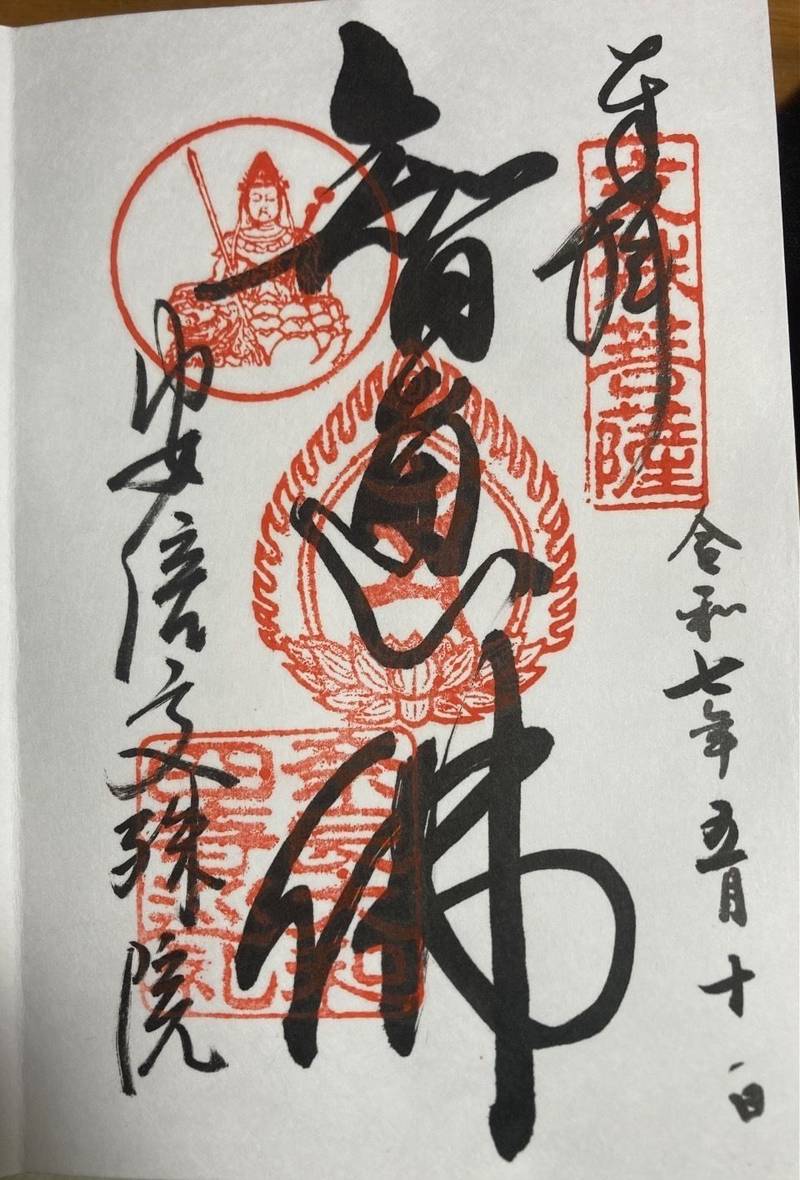 奉拝
文殊菩薩
令和七年五月十一日
智恵佛
安倍文殊院